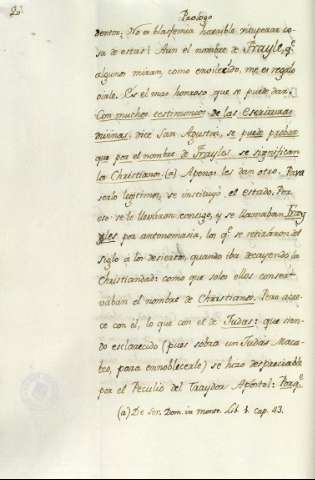 2.
Prologo
dentor: No es blasfemia horrible vituperar co-
sa de estas? Aun el nombre de Frayle, qe.
algunos miran, como envilecido, me es regalo
oirle. Es el mas honroso que se puede dar.
Con muchos testimonios de las Escrituras
divinas, dice San Agustin, se puede probar
que por el nombre de Frayles se significan
los Christianos. (a) Apenas les dan otro. Para
serlo legitimos, se instituyó el estado. Por
eso se le llevaron consigo, y se llamaban Fray-
les por antonomasia, los qe. se retiráron del
siglo á los desiertos, quando iba decayendo la
Christiandad: como que solos ellos conser-
vaban el nombre de Christianos. Pero acae-
ce con él, lo que con el de Judas: que sien-
do esclarecido (pues sobra un Judas Maca-
beo, para ennoblecerle) se hizo despreciable
por el Peculio del Traydor Apóstol: Porqe.
(a) De Ser. Dom. in monte. Lib. 1. cap. 43.